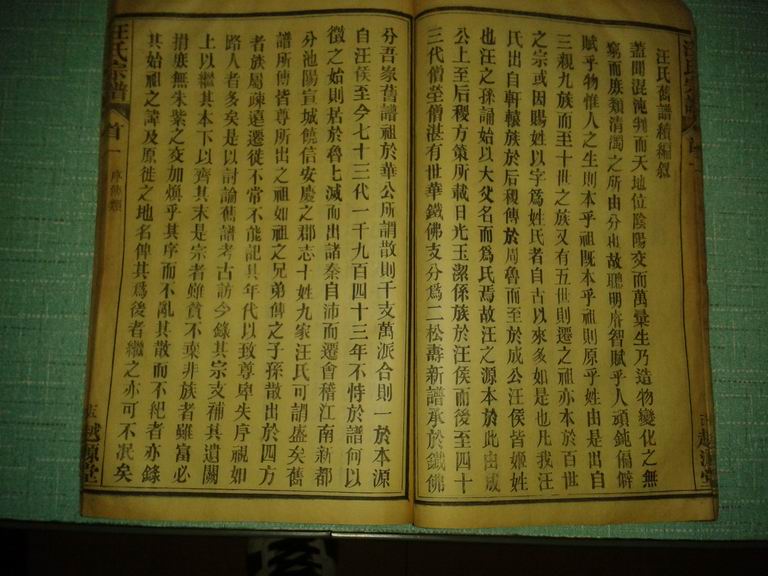 汪氏舊譜積編叙
蓋聞混沌判而天地位陰陽交而萬彙生乃造物變化之無
窮而族類清濁之所由分也故聰明睿智賦乎人頑鈍偏僻
賦乎物惟人之生則本乎祖既本乎祖則原乎姓由是出自
三親九族而至十世之族又有五世則遷之祖亦本於百世
之宗或因賜姓以字爲姓氏者自古以來多如是也凡我汪
氏出自軒轅族於后稷傳於周魯而至於成公汪侯皆姬姓
也汪之孫誦始以大父名而爲氏焉故汪之源本於此由成
公上至后稷方策所載日光玉潔係族於汪侯而後至四十
三代僧塋僧湛有世華鐵佛支分爲二松壽新譜承於鐵佛
分吾家舊譜祖於華公所謂散則千支萬派合則一於本源
自汪侯至今七十三代一千九百四十三年不恃於譜何以
徵之始則居於魯七滅而出諸秦自沛而遷會稽江南新都
分池陽宣城饒信安慶之郡志十姓九家汪氏可謂盛矣舊
譜所傳皆尊所出之祖如祖之兄弟傳之子孫散出於四方
者族屬疎遠遷徙不常不能記其年代以致尊卑失序視如
路人者多矣是以討論舊譜考古訪今錄其宗支補其遺闕
上以繼其本下以齊其末是宗者雖貧不棄非族者雖富必
捐庶無朱紫之交加煥乎其序而不亂其散而不紀者亦錄
其始祖之諱及原徙之地名俾其爲後者繼之亦可不泯矣
汪氏宗譜
首一
序傳類
越源堂